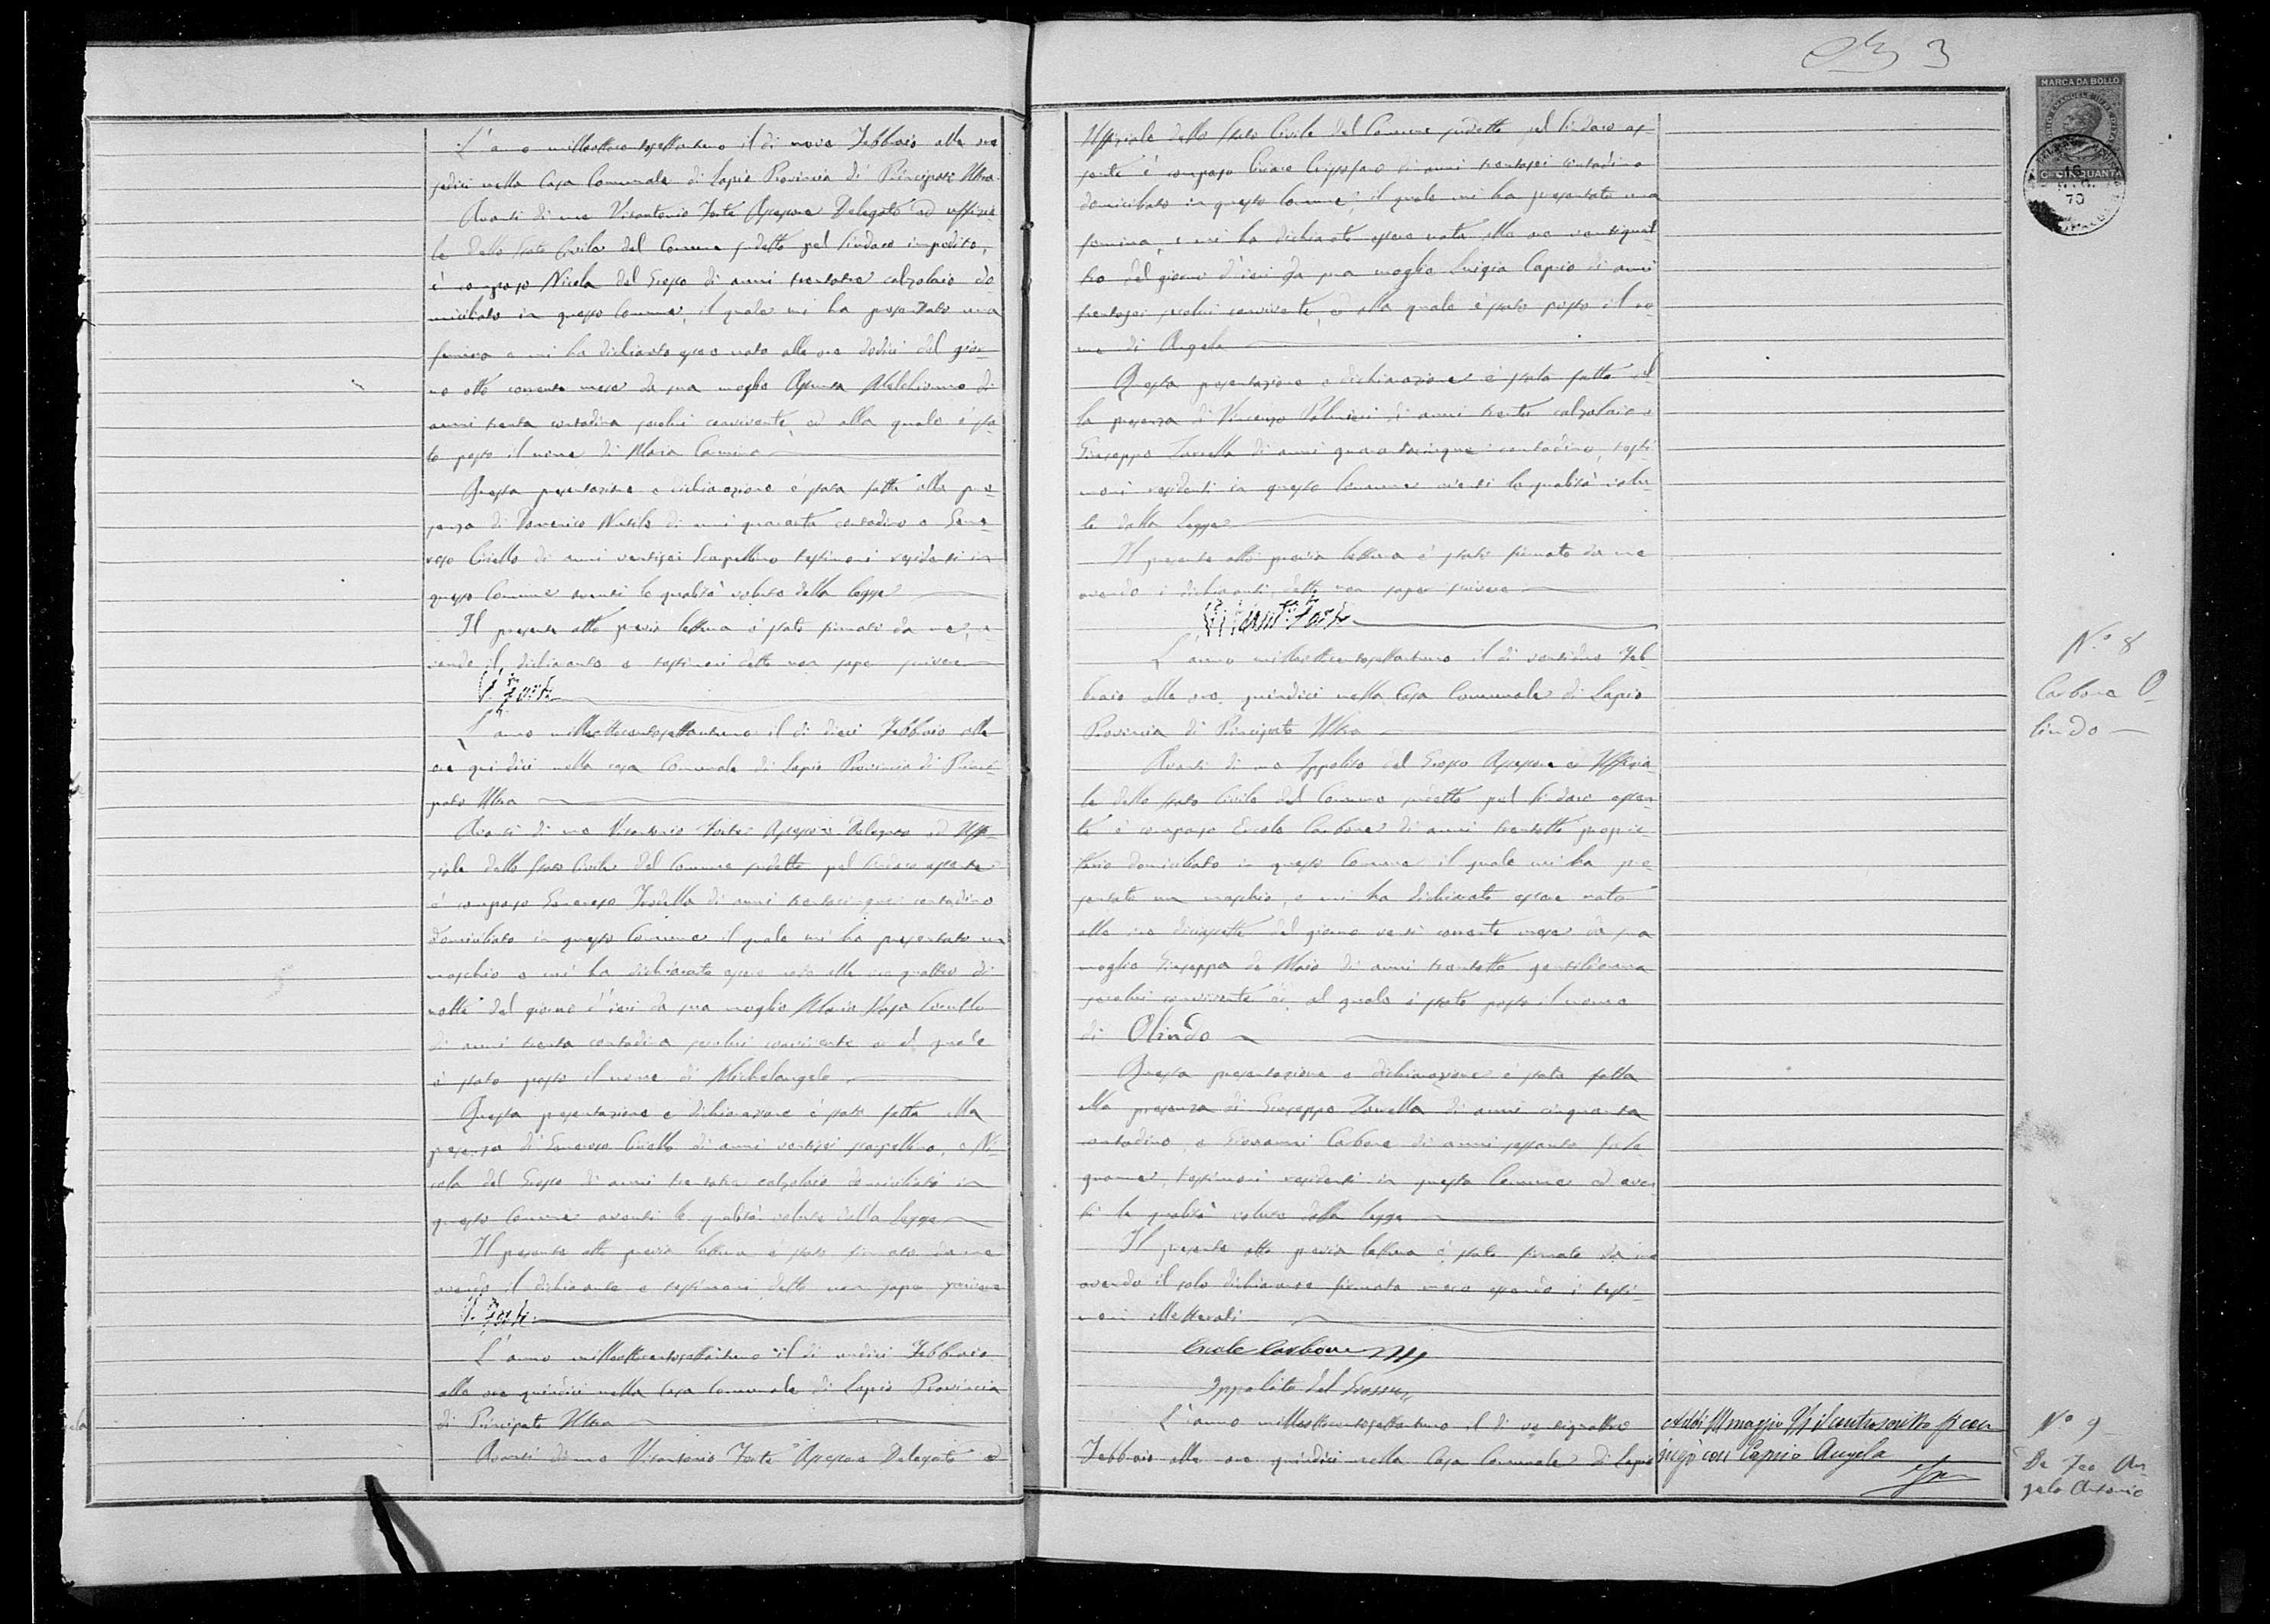 L'anno milleottocentosettantuno il dì nove Febbraio alle ore
sedici nella Casa Comunale di Lapio Provincia di Principato Ultra
Avanti di me Vitantonio Forte Assessore Delegato ad uffizia-
le dello Stato Civile del Comune sudetto pel Sindaco impedito,
è comparso Nicola del Grosso di anni trentatre calzolaio do-
miciliato in questo Comune, il quale mi ha presentato una
femina e mi ha dichiarato essere nata alle ore dodici del gior-
no otto corrente mese da sua moglie Assunta Melchionno di
anni trenta contadina secolui convivente, ed alla quale è sta-
to posto il nome di Maria Carmina
Questa presentazione e dichiarazione è stata fatta alla pre-
senza di Domenico di anni quaranta contadino e Gene-
roso Ciriello di anni ventisei Scarpellino testimoni residenti in
questo Comune aventi le qualità volute dalla legge
Il presente atto previa lettura è stato firmato da me, a-
vendo il dichiarante e testimoni detto non saper scrivere
V. Forte
L'anno milleottocentosettantuno il dì dieci Febbraio alle
ore quindici nella casa Comunale di Lapio Provincia di Princi-
pato Ultra
Avanti di me Vitantonio Forte Assessore Delegato ad Uffi-
ziale dello Stato Civile del Comune sudetto pel Sindaco assente
è comparso Generoso di anni trentacinque contadino
domiciliato in questo Comune il quale mi ha presentato un
maschio e mi ha dichiarato essere nato alle ore quattro di
notte del giorno d'ieri da sua moglie Maria Rosa
di anni trenta contadina secolui convivente ed al quale
è stato posto il nome di Michelangelo
Questa presentazione e dichiarazione è stata fatta alla
presenza di Generoso Ciriello di anni ventisei scarpellino, e Ni-
cola del Grosso di anni trentatre calzolaio domiciliati in
questo Comune aventi le qualità volute dalla Legge
Il presente atto previa lettura è stato firmato da me
avendo il dichiarante e testimoni detto non saper scrivere
V. Forte
L'anno milleottocentosettantuno il dì undici Febbraio
alle ore quindici nella Casa Comunale di Lapio Provincia
di Principato Ultra
Avanti di me Vitantonio Forte Assessore Delegato ad
3
MARCA DA BOLLO
CINQUANTA
70
Uffiziale dello Stato Civile del Comune sudetto pel Sindaco as-
sente è comparso di anni trentasei contadino
domiciliato in questo Comune, il quale mi ha presentato una
femina, e mi ha dichiarato essere nata alle ore ventiquat-
tro del giorno d'ieri da sua moglie Luigia Caprio di anni
trentasei secolui convivente, ed alla quale è stato posto il no-
me di Angela
Questa presentazione e dichiarazione è stata fatta al-
la presenza di Vincenzo di anni trenta calzolaio e
Giuseppe di anni quarantacinque contadino, testi-
moni residenti in questo Comune aventi le qualità volu-
te dalla Legge
Il presente atto previa lettura è stato firmato da me
avendo i dichiaranti detto non saper scrivere
Vitant.o Forte
L'anno milleottocentosettantuno il dì ventidue Feb-
braio alle ore quindici nella Casa Comunale di Lapio
Provincia di Principato Ultra
Avanti di me Ippolito del Grosso Assessore ed Uffizia-
le dello Stato Civile del Comune sudetto pel Sindaco assen-
te è comparso Ercole Carbone di anni trentotto proprie-
tario domiciliato in questo Comune il quale mi ha pre-
sentato un maschio, e mi ha dichiarato essere nato
alle ore diciassette del giorno venti corrente mese da sua
moglie Giuseppa de Maio di anni trentotto gentildonna
secolui convivente ed al quale è stato posto il nome
di Olindo
Questa presentazione e dichiarazione è stata fatta
alla presenza di Giuseppe di anni cinquanta
contadino, e Giovanni Carbone di anni sessanta fale-
gname, testimoni residenti in questo Comune ed aven-
ti le qualità volute dalla legge
Il presente atto previa lettura è stato firmato da me
avendo il solo dichiarante firmato meco essendo i testi-
moni illetterati
Ercole Carbone
Ippolito del Grosso
L'anno milleottocentosettantuno il dì ventiquattro
Febbraio alle ore quindici nella Casa Comunale di Lapio
N.o 8
Carbone O-
lindo
Addì maggio il controscritto si con
iugò con Caprio Angela
N.o 9
De Feo An-
gelo Antonio